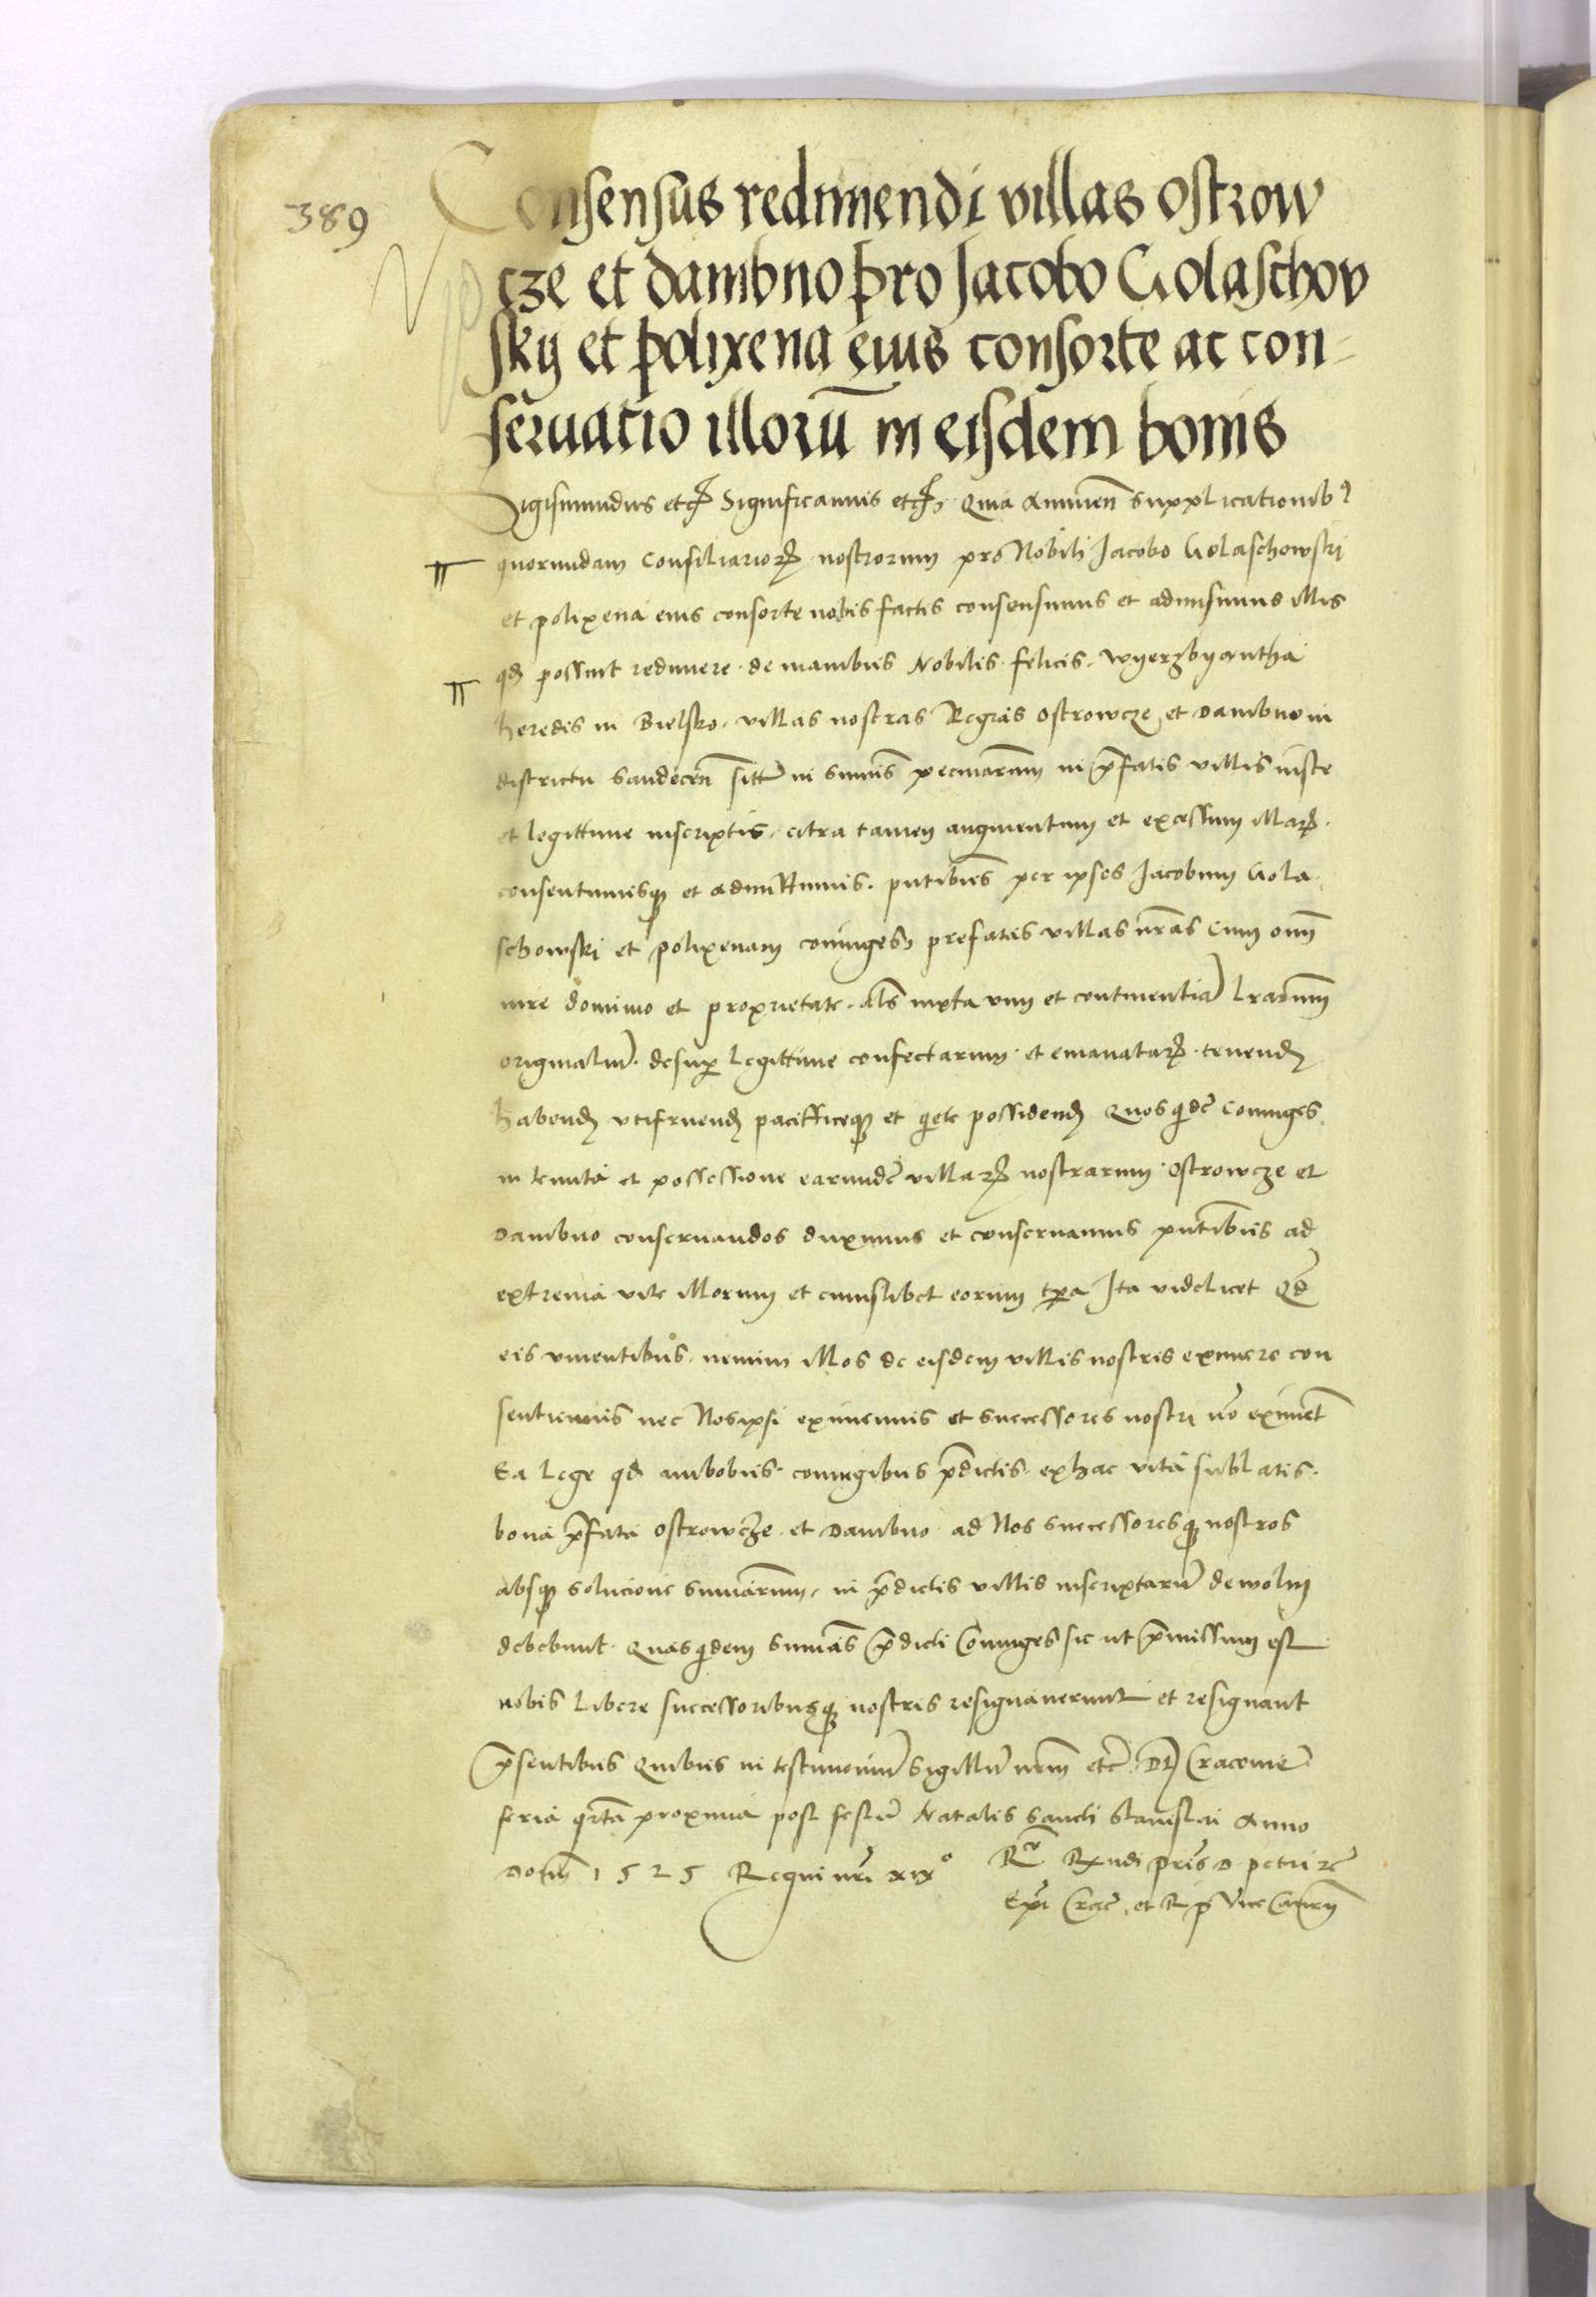 389
Consensus redimendi villas Ostrow
cze et dambno pro Jacobo Golaschov
skÿ et polixena eius consorte ac con=
seruatio illorū in eisdem bonis
Sigismundus etc Significamus etc Quia Annuen̄ supplicationib9
quorundam Consiliarioꝝ nostrorum pro Nobili Jacobo Golaschowski
et polixena eius consorte nobis factis consensimus et admisimus illis
qd possint redimere de manibus Nobilis felicis Wyerzbyantha
heredis in Bielsko villas nostras Regias Ostrowcze et Dambno in
districtu Sandecen̄ sitt̄ in sum̄is pecuniarum in p̄fatis villis iuste
et legittime inscriptis citra tamen augmentum et excessum illaꝝ
consentimusqꝫ et admittimus pn̄tibus per ipsos Jacobum Gola
schowski et polixenam coniuges prefatas villas nr̄as Cum omī
iure dominio et proprietate Als̄ iuxta vim et continentiā Lrārum
originaliū desup Legittime confectarum et emanataꝝ tenend
habend vtifruend pacifficeqꝫ et qiete possidend Quos qidē Coniuges
in tenuta et possessione earundē villaꝝ nostrarum Ostrowcze et
Dambno conseruandos duximus et conseruamus pn̄tibus ad
extrema vite illorum et cuiuslibet eorum tpa Ita videlicet Qd
eis viuentibus nemini illos de eisdem villis nostris eximere con
sentiemus nec Nosipsi eximemus et successores nostri nō eximēt
Ea Lege qd ambobus coniugibus p̄dictis ex hac vita sublatis
bona p̄fata Ostrowcze et Dambno ad Nos successoresqꝫ nostros
absqꝫ solucione sum̄arum in p̄dictis villis inscriptarū dewolui
debebunt Quas qidem sum̄as p̄dicti Coniuges sic ut p̄missum est
nobis Libere successoribusqꝫ nostris resignauerunt et resignant
p̄sentibus Quibus in testimoniū Sigillū nr̄m etc̄ Dt Cracouie
feria qītā proxima post festū Natalis Sancti Stanislai Anno
Domī 1525 Regni nri xix°
Rō Rndi pr̄is D petri zc̄
Ep̄i Crac̄ et R p̄ Vice Can̄rii